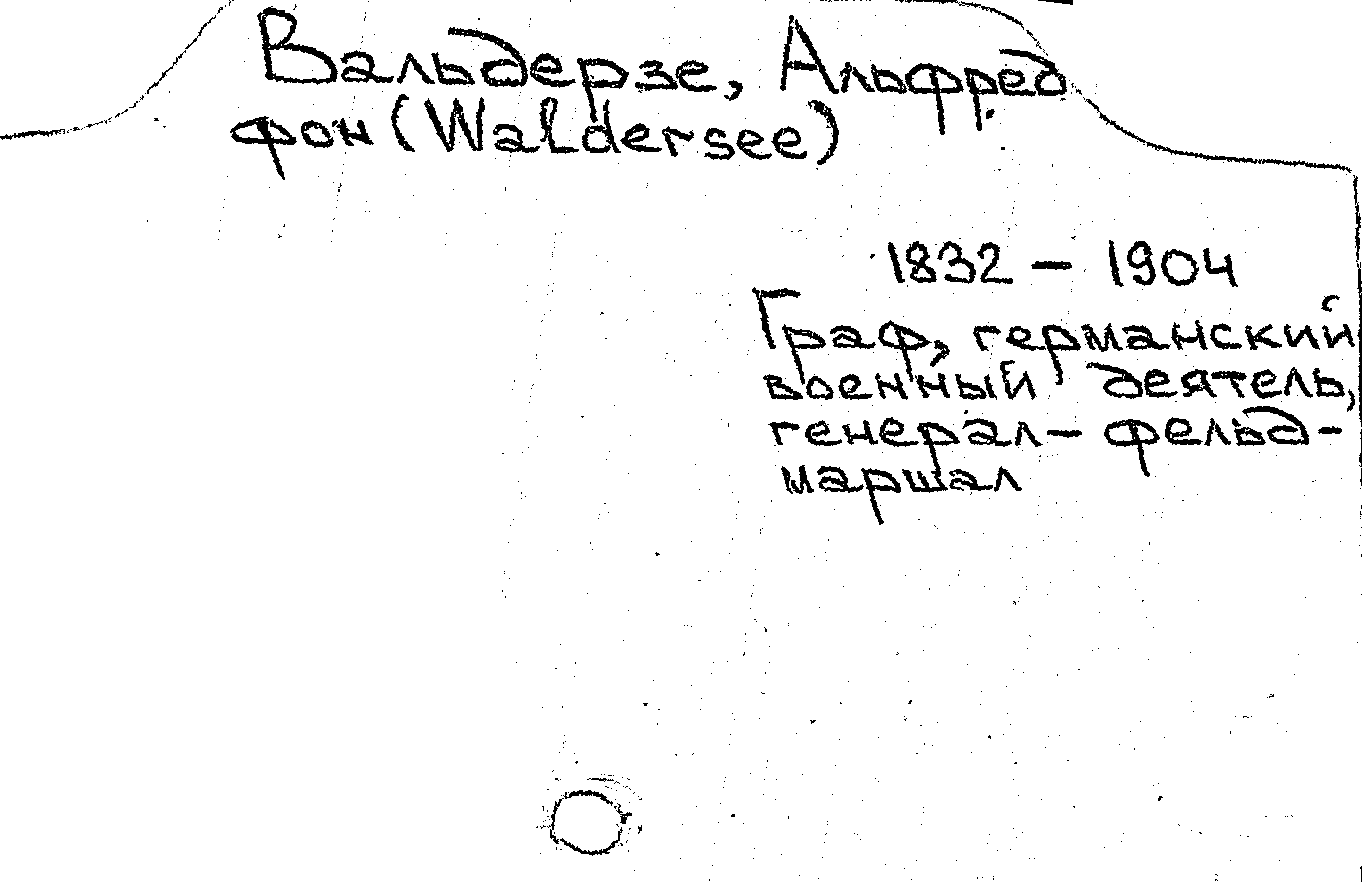 Вальдерзе, Альфред
фон (Waldersee)
1832 – 1904
Граф, германский
военный деятель,
генерал-фельд-
маршал